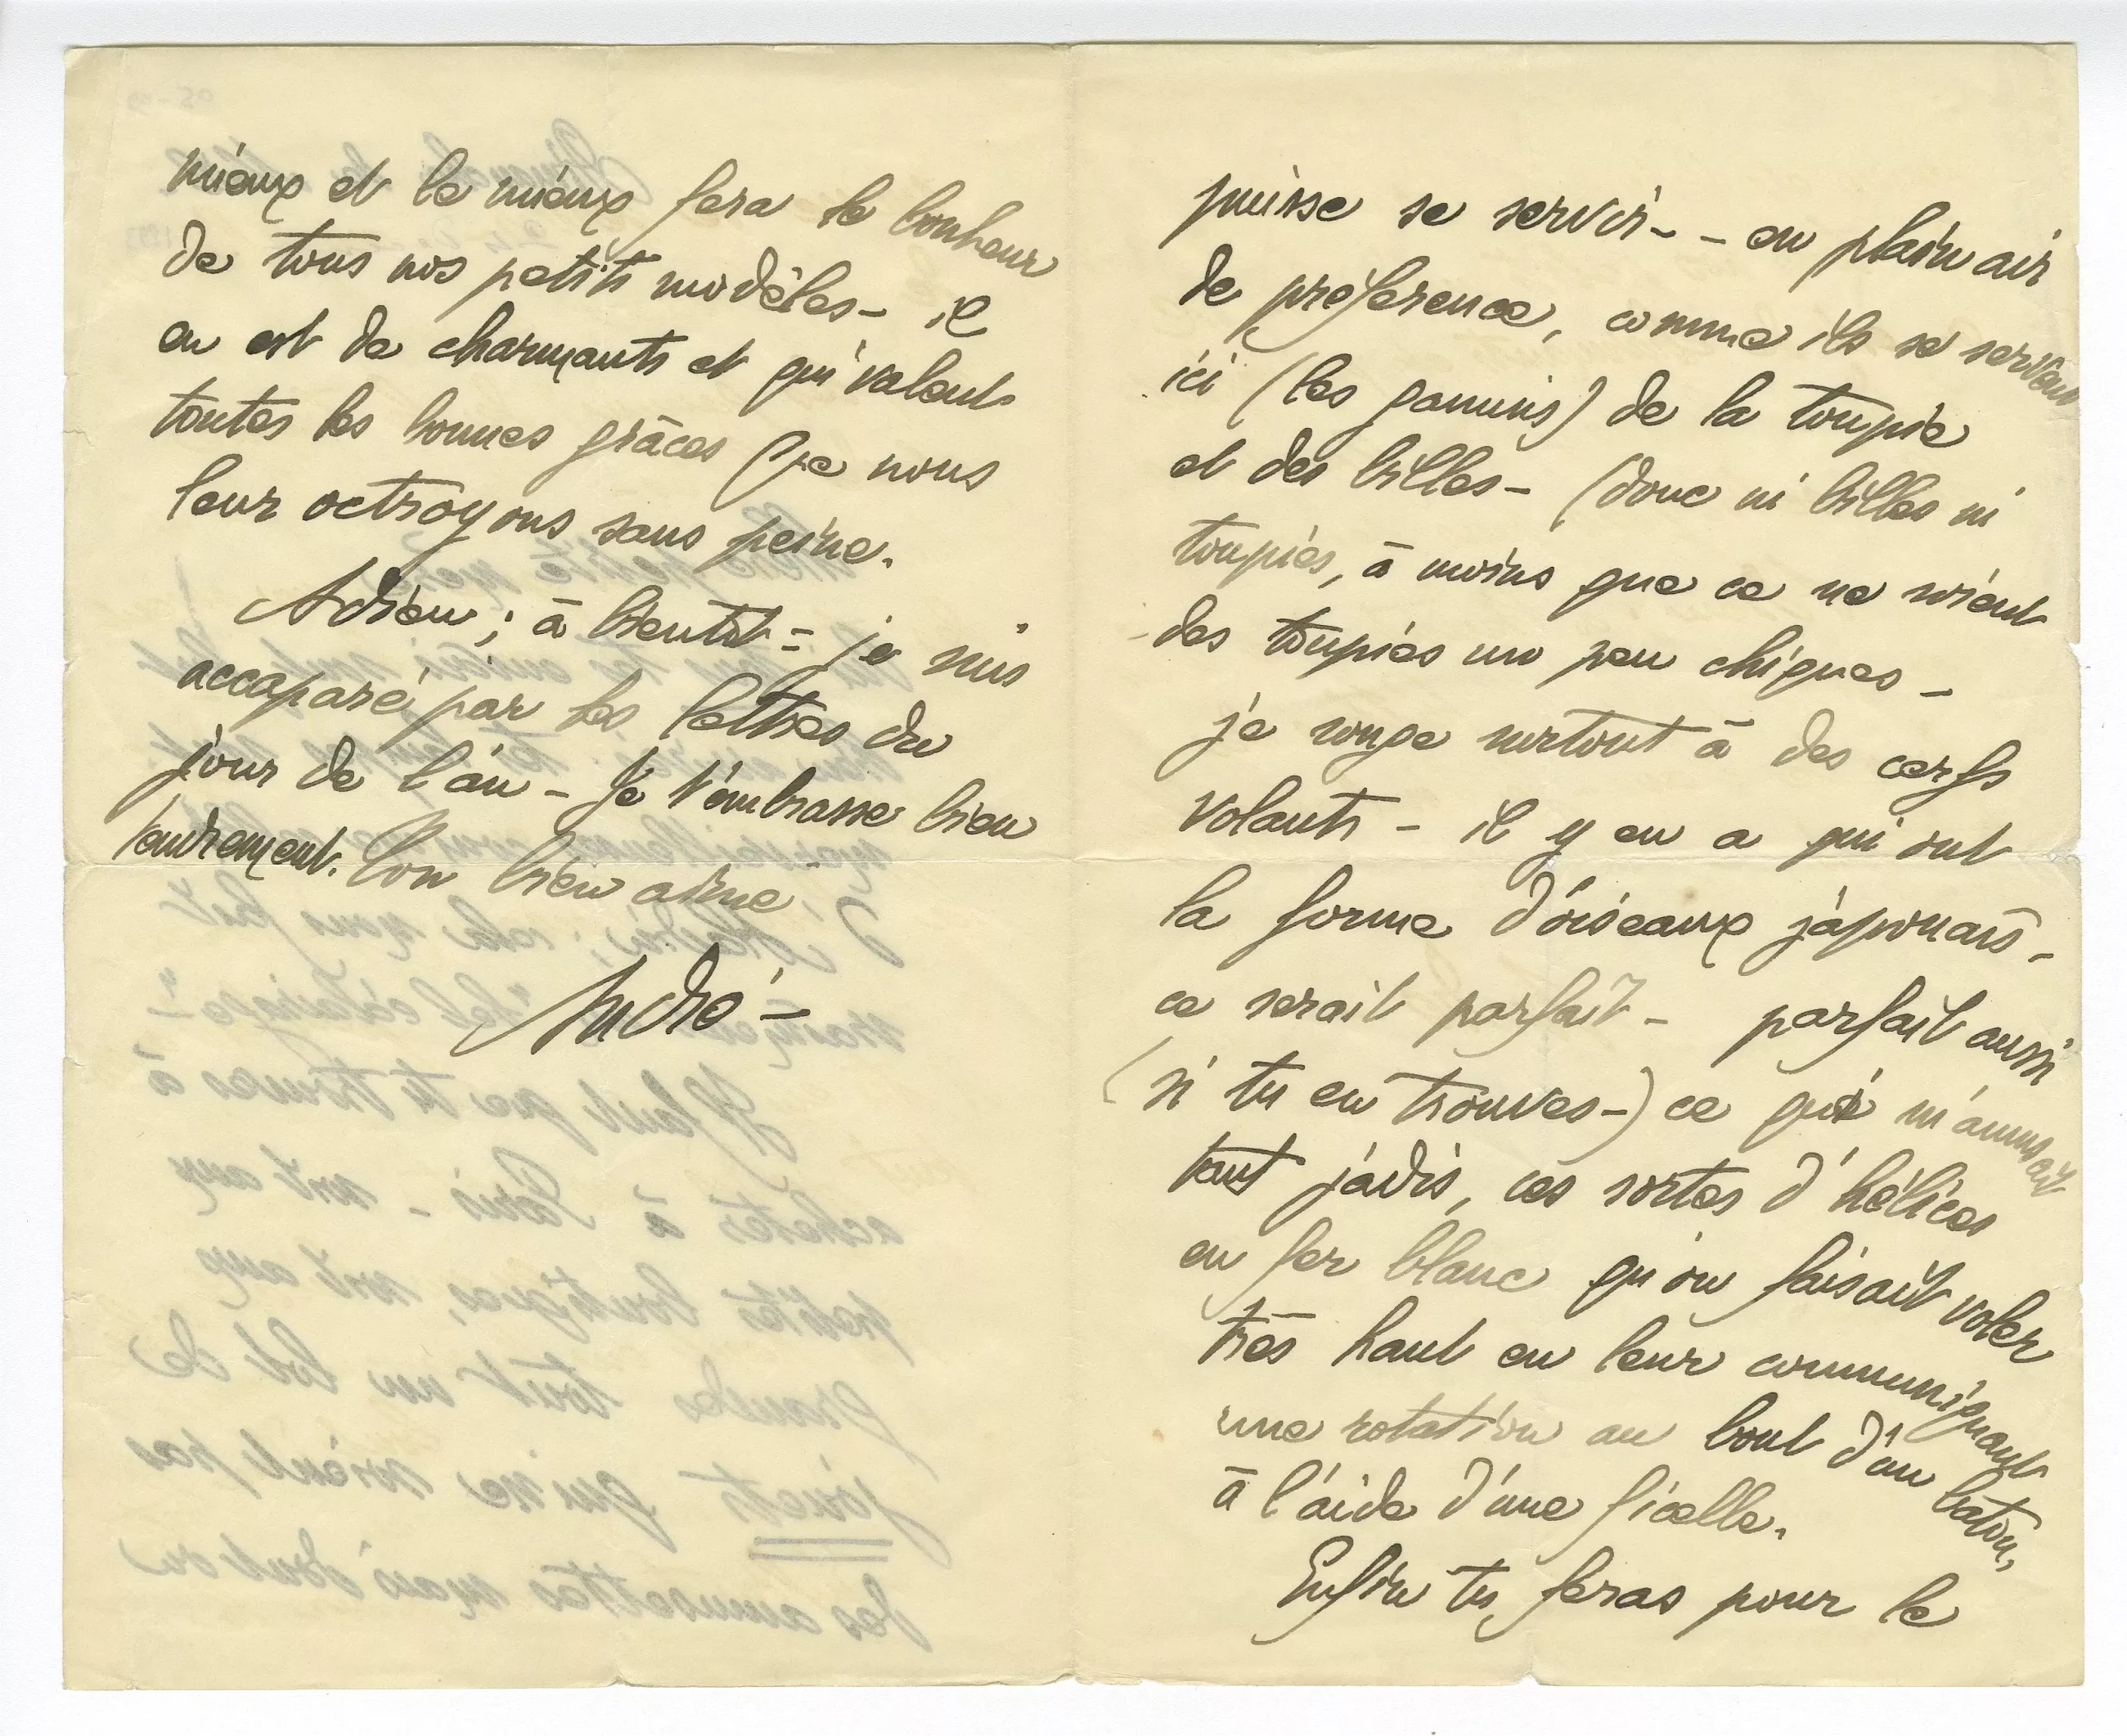 puisse se servir – – en plein air
de préférence, comme ils se servent
ici (les gamins) de la toupie
et des billes – (donc ni billes ni
toupies, à moins que ce ne soient
des toupies un peu chiques –
je songe surtout à des cerfs
volants – il y en a qui ont
la forme d'oiseaux japonais –
ce serait parfait – parfait aussi
(si tu en trouves –) ce qui m'amusait
tant jadis, ces sortes d'hélices
en fer blanc qu'on faisait voler
très haut en leur communiquant
une rotation au bout d'un bâton,
à l'aide d'une ficelle.
Enfin tu feras pour le
mieux et le mieux fera le bonheur
de tous nos petits modèles – il
en est de charmants et qui valent
toutes les bonnes grâces que nous
leur octroyons sans peine.
Adieu ; à bientôt – je suis
accaparé par les lettres du
jour de l'an – Je t'embrasse bien
tendrement. Ton bien aimé
André –